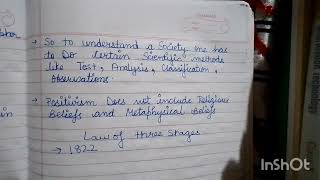 → So to understand a Society one has
to Do Certain Scientific methods
like Test, Analysis, Classification,
Observations.
→ Positivism Does not include Religious
Beliefs and Metaphysical Beliefs
Law of Three Stages
→ 1822
InShOt